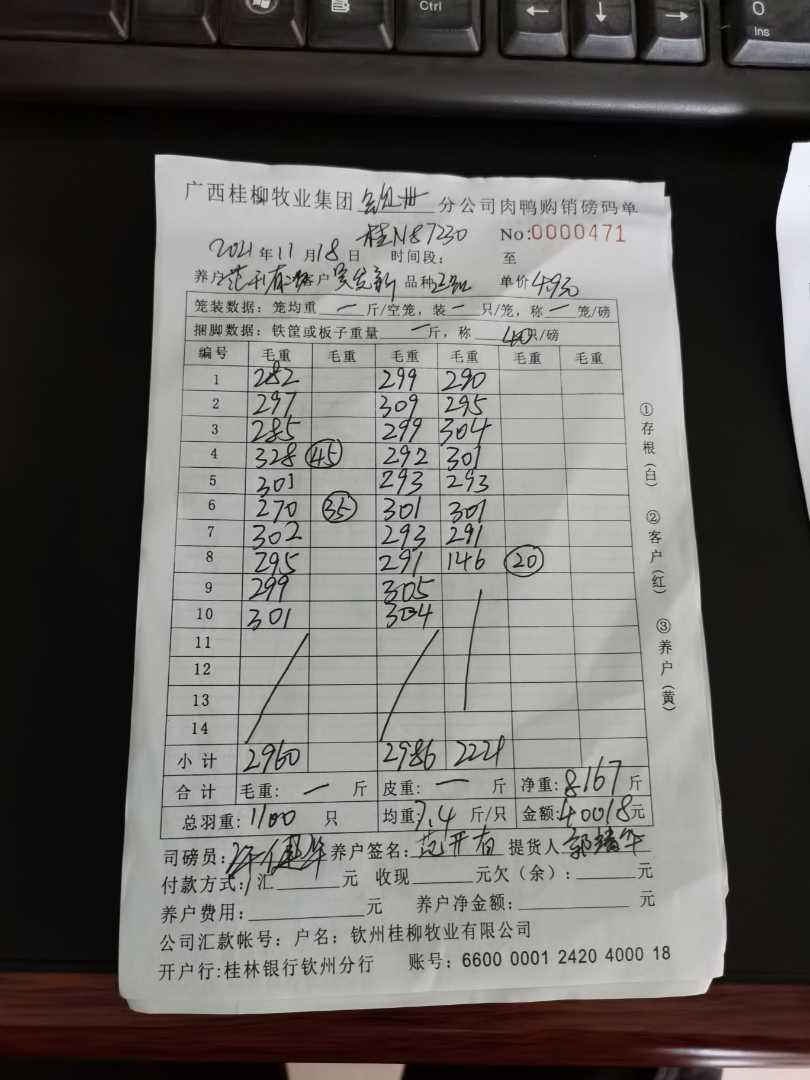 Ctrl
←
↓
→
O
Ins
广西桂柳牧业集团 钦州 分公司肉鸭购销磅码单
桂N87230 No:0000471
2021年11月18日 时间段: 至
养户 户 品种正品 单价4.9元
笼装数据: 笼均重 一 斤/空笼, 装一 只/笼, 称一 笼/磅
捆脚数据: 铁筐或板子重量 一 斤, 称 40只/磅
编号 毛重 毛重 毛重 毛重 毛重 毛重
1 282 299 290
2 297 309 295
3 285 299 304
4 328 45 292 301
5 301 293 293
6 270 35 301 301
7 302 293 291
8 295 291 146 20
9 299 305
10 301 304
11
12
13
14
小计 2960 2986 2221
合计 毛重: 一 斤 皮重: 一 斤 净重: 8167斤
总羽重: 1100 只 均重: 7.4 斤/只 金额: 40018元
司磅员: 养户签名: 范开有 提货人
付款方式: 汇 元 收现 元欠(余): 元
养户费用: 元 养户净金额: 元
公司汇款帐号: 户名: 钦州桂柳牧业有限公司
开户行:桂林银行钦州分行 账号: 6600 0001 2420 4000 18
①存根(白) ②客户(红) ③养户(黄)